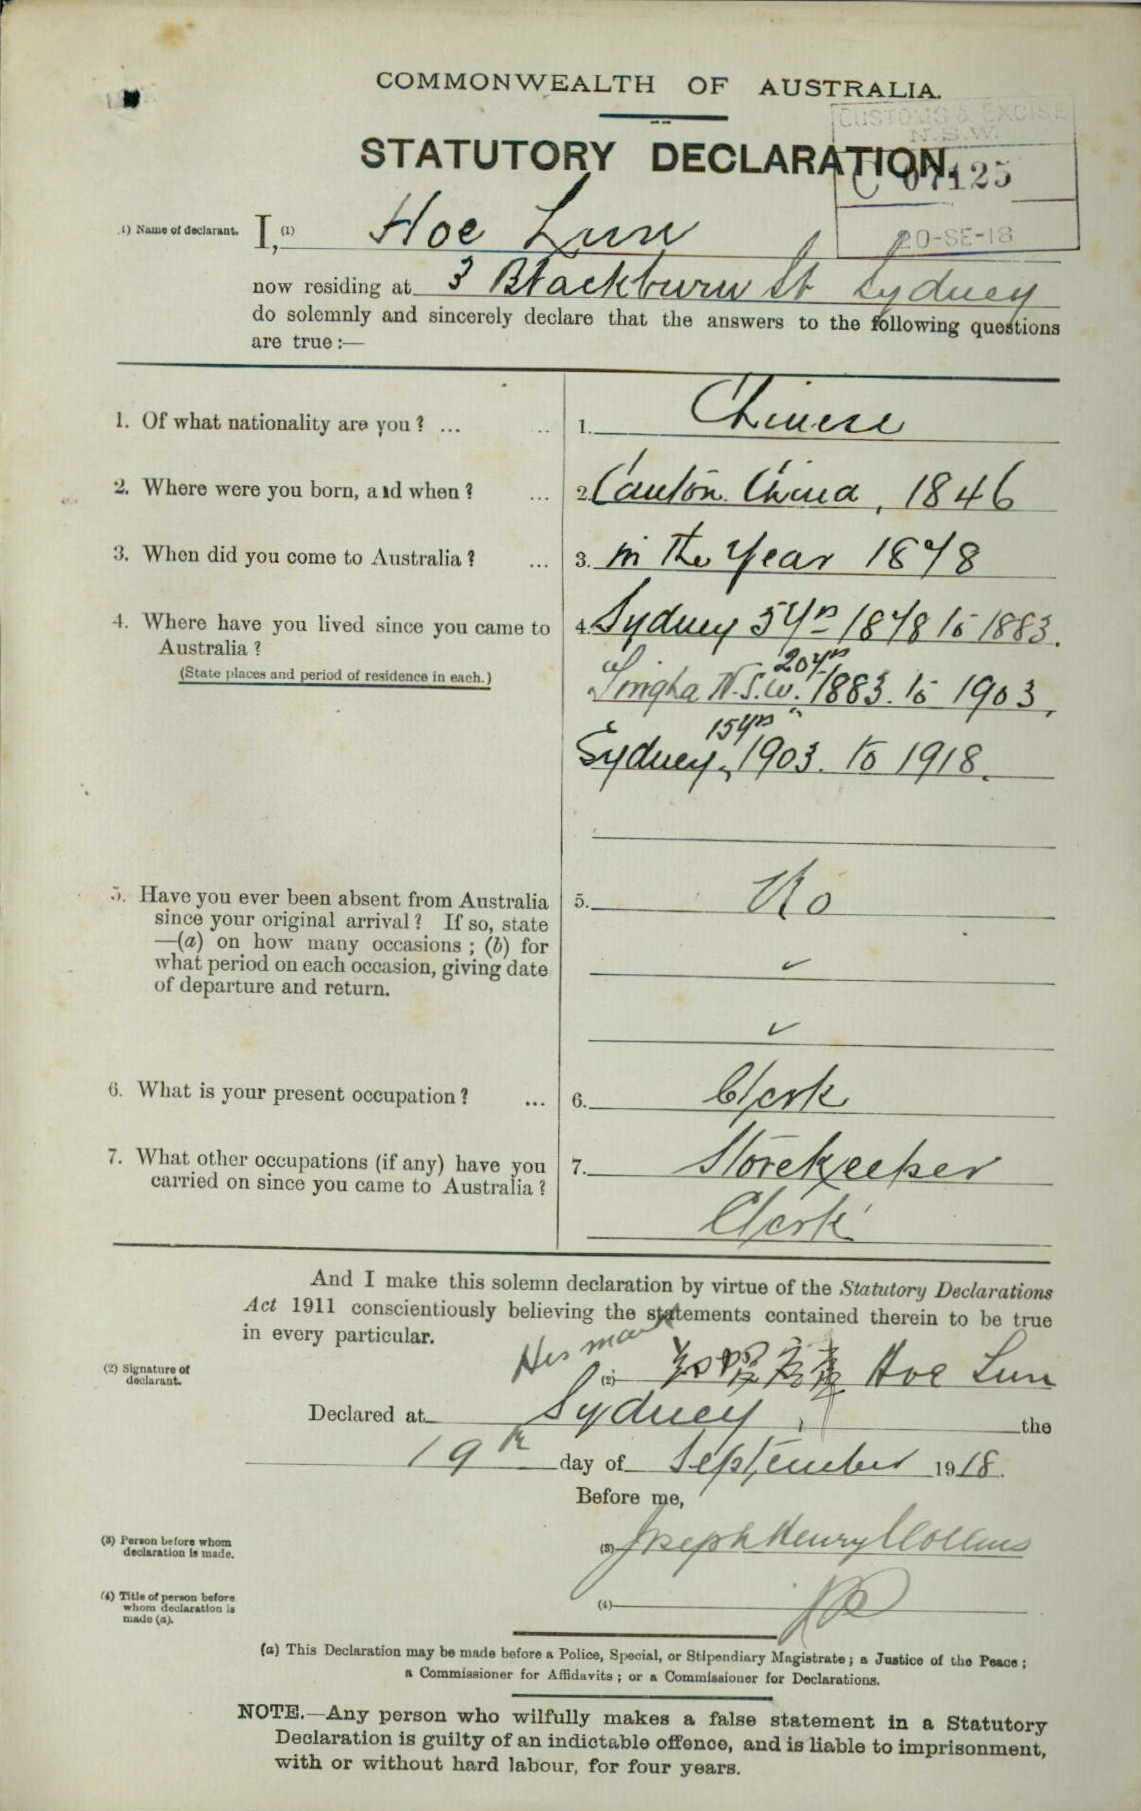 COMMONWEALTH OF AUSTRALIA.
CUSTOMS & EXCISE
N.S.W.
STATUTORY DECLARATION.
C 07125
20-SE-18
(1) Name of declarant.
I, (1) Hoe Lun
now residing at 3 Blackburn St Sydney
do solemnly and sincerely declare that the answers to the following questions
are true :—
1. Of what nationality are you ? ... .. 1. Chinese
2. Where were you born, and when ? ... 2. Canton China, 1846
3. When did you come to Australia ? ... 3. in the Year 1878
4. Where have you lived since you came to 4. Sydney 5 Yrs 1878 to 1883.
Australia ?
(State places and period of residence in each.)
20 yrs
Tingha N.S.W. 1883. to 1903,
15 yrs
Sydney, 1903. to 1918.
5. Have you ever been absent from Australia 5. No
since your original arrival ? If so, state
—(a) on how many occasions ; (b) for
what period on each occasion, giving date
of departure and return.
6. What is your present occupation ? ... 6. Clerk
7. What other occupations (if any) have you 7. Storekeeper
carried on since you came to Australia ?
Clerk
And I make this solemn declaration by virtue of the Statutory Declarations
Act 1911 conscientiously believing the statements contained therein to be true
in every particular.
His mark
(2) Signature of
declarant.
(2) Hoe Lun
Declared at Sydney, the
19th day of September 1918.
Before me,
(3) Person before whom
declaration is made.
(3) Joseph Henry Collins
(4) Title of person before
whom declaration is
made (a).
(4) JP
(a) This Declaration may be made before a Police, Special, or Stipendiary Magistrate ; a Justice of the Peace ;
a Commissioner for Affidavits ; or a Commissioner for Declarations.
NOTE.—Any person who wilfully makes a false statement in a Statutory
Declaration is guilty of an indictable offence, and is liable to imprisonment,
with or without hard labour, for four years.